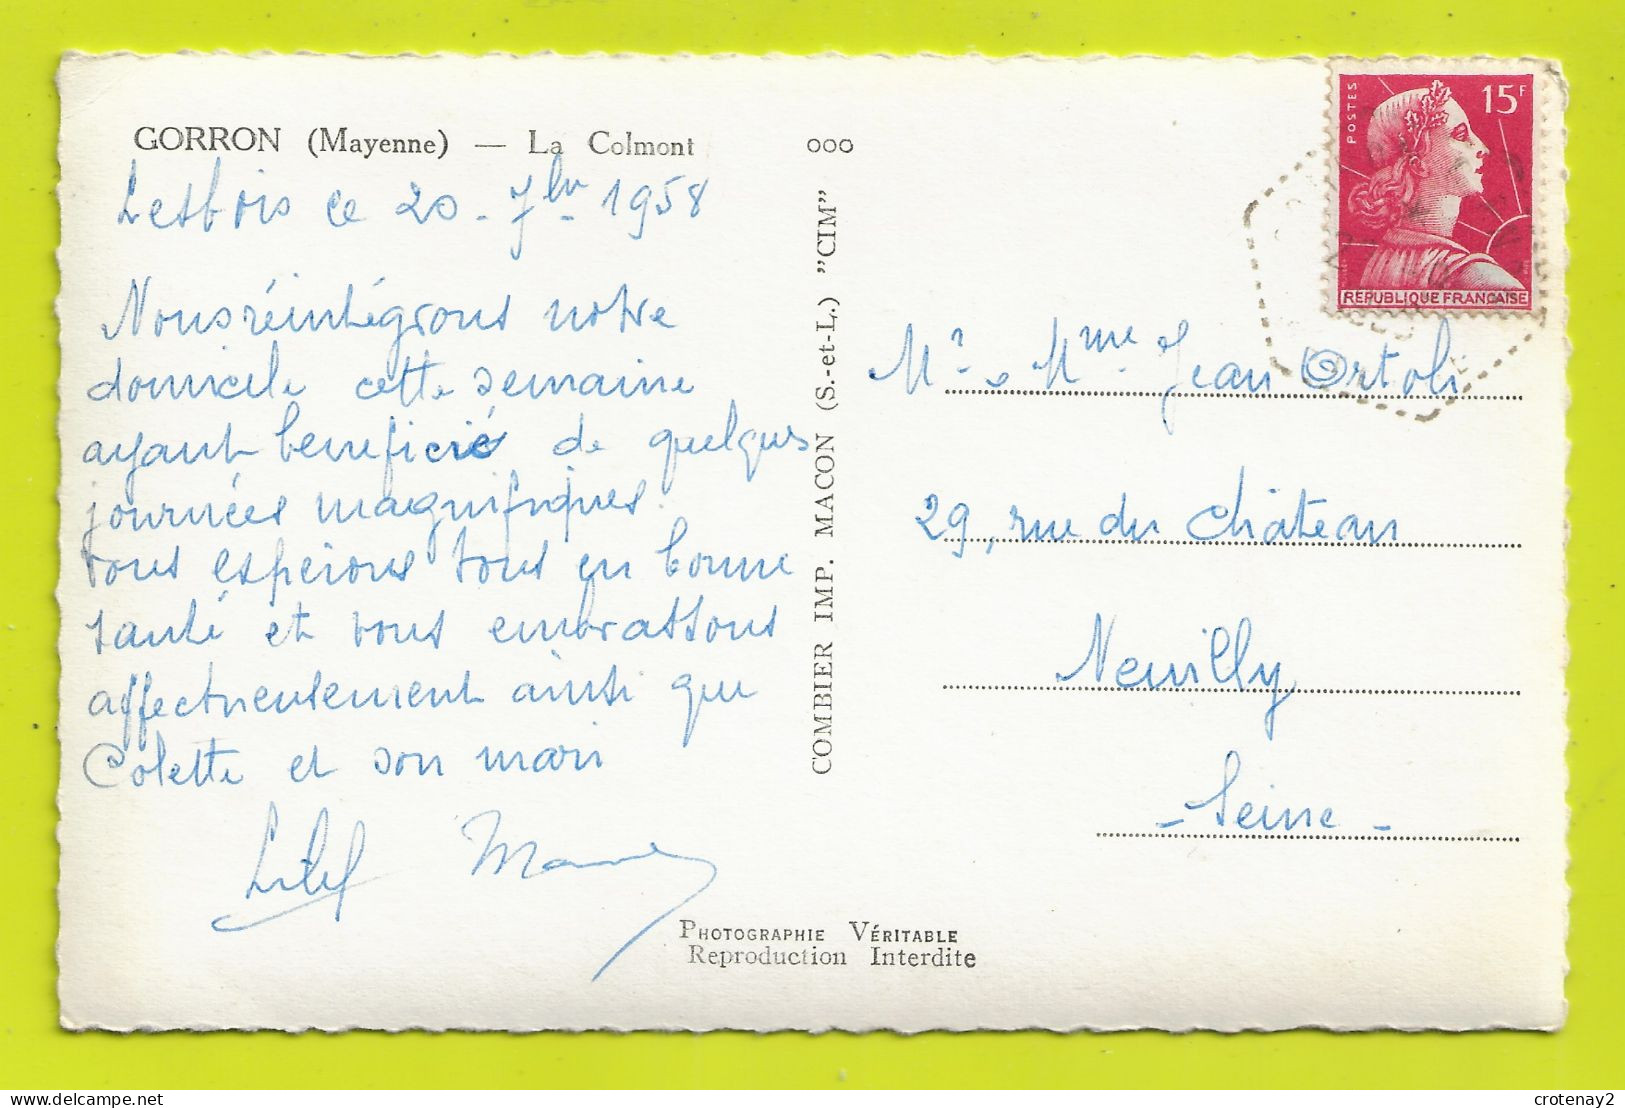 GORRON (Mayenne) — La Colmont
Lesbois ce 20 - 7bre 1958
Nous réintégrons notre
domicile cette semaine
ayant beneficié de quelques
journées magnifiques.
Vous esperons tous en bonne
santé et vous embrassons
affectueusement ainsi que
Colette et son mari
ooo
COMBIER IMP. MACON (S.-et-L.) "CIM"
POSTES
15F
REPUBLIQUE FRANCAISE
Mr & Mme Jean Ortoli
29, rue du Château
Neuilly
- Seine -
PHOTOGRAPHIE VÉRITABLE
Reproduction Interdite
crotenay2